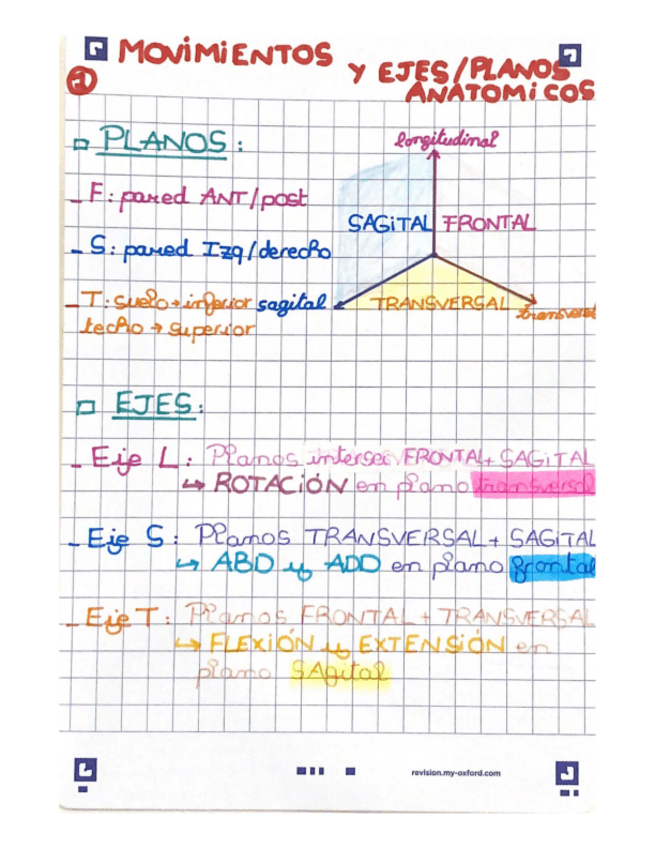 MOVIMIENTOS
Y EJES/PLANOS
ANATOMICOS
1
PLANOS:
longitudinal
- F: pared ANT/post
SAGITAL FRONTAL
- S: pared Izq/derecho
- T: suelo → inferior
sagital
TRANSVERSAL
transversal
techo → superior
EJES:
- Eje L: Planos FRONTAL + SAGITAL
↳ ROTACIÓN en plano transversal
- Eje S: Planos TRANSVERSAL + SAGITAL
↳ ABD y ADD en plano frontal
- Eje T: Planos FRONTAL + TRANSVERSAL
↳ FLEXIÓN y EXTENSIÓN en
plano SAgital
revision.my-oxford.com